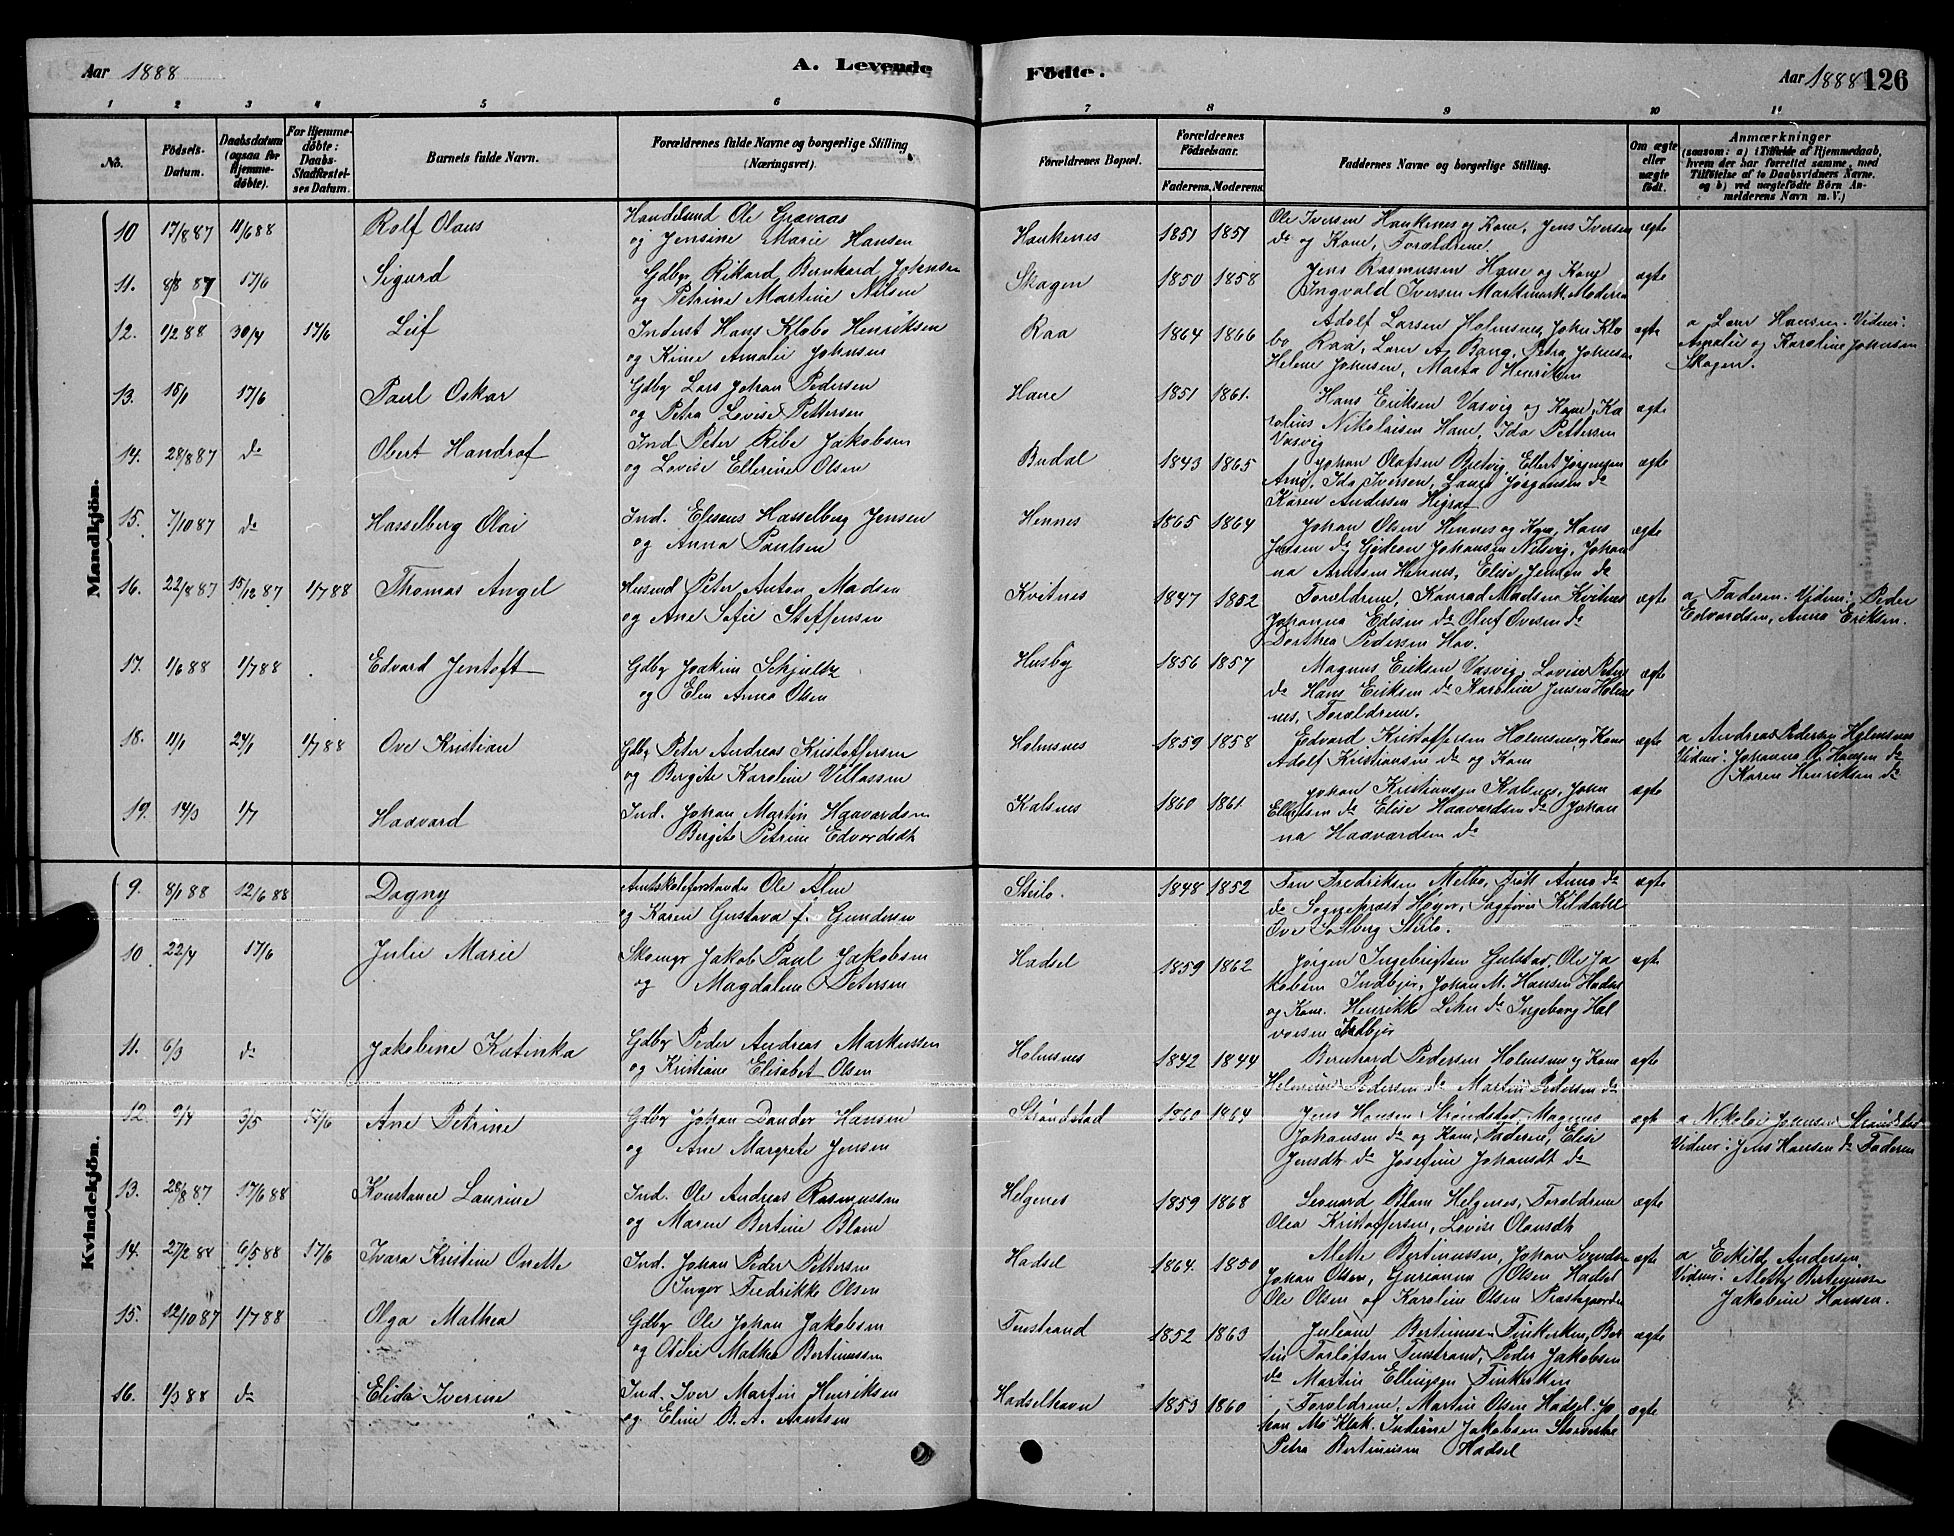 Aar 1888
A. Levende Fødte.
Aar 1888 126
1 2 3 4 5 6 7 8 9 10 11
No.
Fødsels-Datum.
Daabsdatum (ogsaa for Hjemme-døbte).
For Hjemme-døbte: Daabs-Stadfæstel-ses Datum.
Barnets fulde Navn.
Forældrenes fulde Navne og borgerlige Stilling (Næringsvei).
Forældrenes Bopæl.
Forældrenes Fødselsaar.
Faderens. Moderens.
Faddernes Navne og borgerlige Stilling.
Om ægte eller uægte født.
Anmærkninger
(saasom: a) i Tilfælde af Hjemmedaab, hvem der har forrettet samme, med Tilføielse af to Daabsvidners Navne. og b) ved uægtefødte Børn An-melderens Navn m. V.)
Mandkjön.
10 17/8 87 11/6 88 Rolf Olaus Handelsmd Ole Gravaas
og Jensine Marie Hansen Haukenes 1851 1851 Ole Iversen Haukenes og Kone, Jens Iversen
do og Kone, Forældrene. ægte
11. 8/8 87 17/6 Sigurd Gdbr Rikard Bernhard Johnsen
og Petrine Martine Nilsen Skagen 1850 1858 Jens Rasmussen Hane og Kone
Ingvald Iversen Markmark, Moderen ægte
12. 1/2 88 30/4 17/6 Leif Inderst Hans Klæbo Henriksen
og Kine Amalie Johnsen Raa 1864 1866 Adolf Larsen Holmsnes, John Klæ
bo Raa, A. Bang, Petra Johnsen
Helene Johnsen, Marta Henriksen ægte
a Hansen. Vidner:
Amalie og Karoline Johnsen
Skagen.
13. 15/1 17/6 Paul Oskar Gdbr Lars Johan Pedersen
og Petra Lovise Pettersen Hane 1851 1861. Hans Eriksen Vasvig og Kone, Ka
rolius Nikolaisen Hane, Ida Pettersen
Vasvig ægte
14. 28/8 87 do Obert Handraf Ind. Peter Ribe Jakobsen
og Lovise Ellerine Olsen Budal 1843 1865 Johan Olafsen Bretvig, Ellert Jørgensen
Arnø, Ida Iversen, Jørgensen do
Karen Andersen ægte
15. 7/10 87 do Hasselberg Olai Ind. Eliseus Hasselberg Jensen
og Anna Paulsen Hennes 1865 1864 Johan Olsen Hennes og Kone, Hans
Jensen do Gideon Johansen Nilsvig, Johan
na Arntsen Hennes, Elise Jensen do ægte
16. 22/8 87 15/12 87 1/7 88 Thomas Angel Husmd Peter Anton Madsen
og Ane Sofie Steffensen Kvitnes 1847 1852 Forældrene, Konrad Madsen Kvitnes
Johanna Edisen do Oluf Ovesen do
Dorthea Pedersen Hov. ægte
a Faderen. Vidner: Peder
Edvardsen, Anna Eriksen.
17. 1/6 88 1/7 88 Edvard Jentoft Gdbr Joakim Schjultz
og Elen Anna Olsen Husby 1856 1857 Magnus Eriksen Vasvig, Lovise Peters
do Hans Eriksen do Karoline Jensen Holms
nes, Forældrene. ægte
18. 11/1 24/1 1/7 88 Ove Kristian Gdbr Peter Andreas Kristoffersen
og Bergite Karoline Villassen Holmsnes 1859 1858 Edvard Kristoffersen Holmsnes og Kone
Adolf Kristiansen do og Kone ægte
a Andreas Pedersen Holmsnes
Vidner: Johanna Hansen do
Karen Henriksen do
19. 14/3 1/7 Haavard Ind. Johan Martin Haavardsen
Bergite Petrine Edvardsdt Kalsnes 1860 1861. Johan Kristiansen Kalsnes, John
do Elise Haavardsen do Johan
na Haavardsen do ægte
Kvindekjön.
9. 8/1 88 12/6 88 Dagny Amtskoleforstander Ole Alme
og Karen Gustava f. Gundersen Steilo. 1848 1852 Fru Fredriksen Melbo, Frøk Anna do
do Sogneprest Høyer, Sagfører Kildahl
Ove Solberg Steilo. ægte
10 22/4 17/6 Julie Marie Skomgr Jakob Paul Jakobsen
og Magdalene Petersen Hadsel 1859 1862 Jørgen Ingebrigtsen Gulstad, Ole Ja
kobsen Indbjør, Johan M. Hansen Hadsel
og Kone. Henrikke Lihn do Ingeborg Hal
vorsen Indbjør ægte
11. 6/3 do Jakobine Katinka Gdbr Peder Andreas Markussen
og Kristiane Elisabet Olsen Holmsnes 1842 1844 Bernhard Pedersen Holmsnes og Kone
Pedersen do Martin Pedersen do ægte
12. 9/4 3/5 17/6 Ane Petrine Gdbr Johan Dander Hansen
og Ane Margrete Jensen Strøndstad 1860 1864 Jens Hansen Strøndstad, Magnus
Johansen do og Kone, Faderen, Elise
Jensdt do Josefine Johansdt do ægte
a Nikolai Johnsen Strøndstad
Vidner: Jens Hansen do Faderen
13. 28/8 87 17/6 88 Konstance Laurine Ind. Ole Andreas Rasmussen
og Maren Bertine Blom Helgenes 1859 1868 Leonard Blom Helgenes, Forældrene
Olea Kristoffersen, Lovise Olausdt ægte
14. 27/2 88 6/5 88 17/6 Ivara Kristine Onette Ind. Johan Peder Pettersen
Inger Fredrikke Olsen Hadsel 1864. 1850 Mette Bertinussen, Johan Svendsen
Johan Olsen, Gureanna Olsen Hadsel
Ole Olsen og Karoline Olsen Præstgaarden ægte
a Eskild Andersen.
Vidner: Mette Bertinussen
Jakobine Hansen.
15. 12/10 87 1/7 88 Olga Mathea Gdbr Ole Johan Jakobsen
og Otelie Mathea Bertinussen Finstrand 1852 1863 Juliane Bertinussen Finkerken, Ber
tin Torlofsen Finstrand, Peder Jakobsen
do Martin Ellingsen Finkerken ægte
16. 1/3 88 do Elida Iverine Ind. Iver Martin Henriksen
og Eline B. A. Arntsen Hadselhavn 1853 1860 Forældrene, Martin Olsen Hadsel. Jo
han Mo Indiane Jakobsen
Petra Bertinusen Hadsel ægte